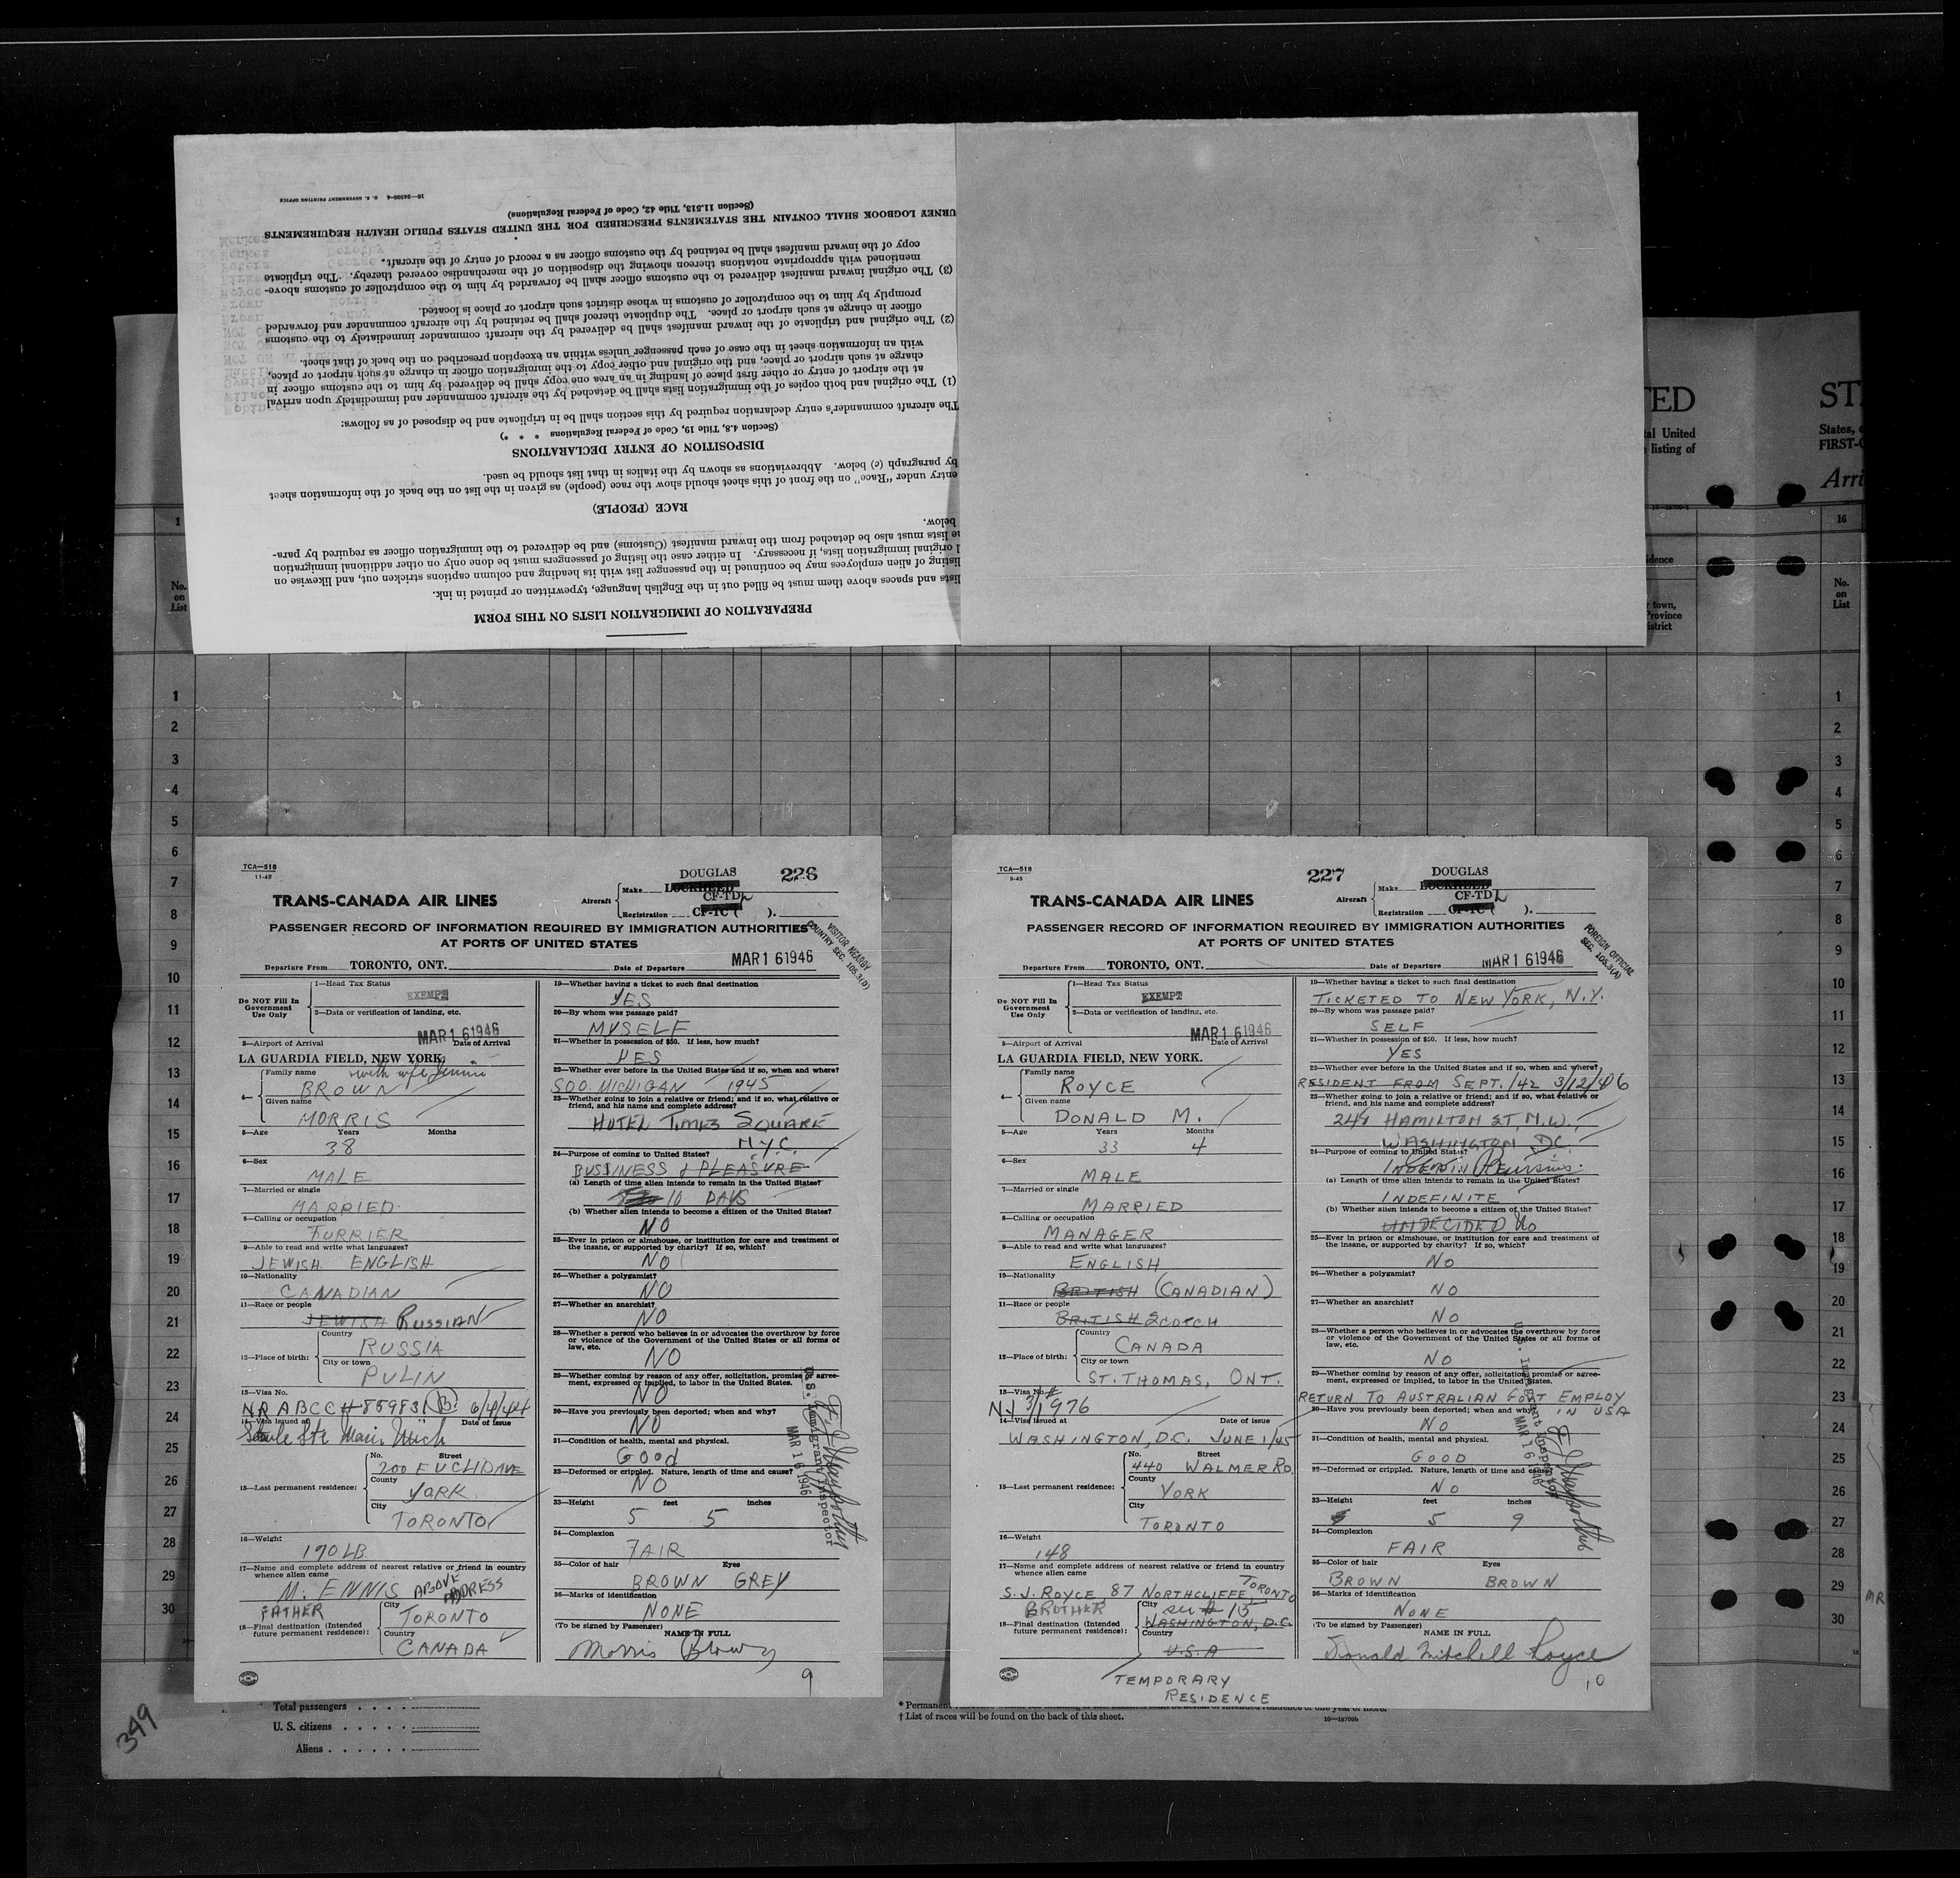 16—24508-4 U. S. GOVERNMENT PRINTING OFFICE
(Section 11.513, Title 42, Code of Federal Regulations)
URNEY LOGBOOK SHALL CONTAIN THE STATEMENTS PRESCRIBED FOR THE UNITED STATES PUBLIC HEALTH REQUIREMENTS
copy of the inward manifest shall be retained by the customs officer as a record of entry of the aircraft.
mentioned with appropriate notations thereon showing the disposition of the merchandise covered thereby. The triplicate
(3) The original inward manifest delivered to the customs officer shall be forwarded by him to the comptroller of customs above-
promptly by him to the comptroller of customs in whose district such airport or place is located.
officer in charge at such airport or place. The duplicate thereof shall be retained by the aircraft commander and forwarded
(2) The original and triplicate of the inward manifest shall be delivered by the aircraft commander immediately to the customs
with an information sheet in the case of each passenger unless within an exception prescribed on the back of that sheet.
charge at such airport or place, and the original and other copy to the immigration officer in charge at such airport or place,
at the airport of entry or other first place of landing in an area one copy shall be delivered by him to the customs officer in
(1) The original and both copies of the immigration lists shall be detached by the aircraft commander and immediately upon arrival
The aircraft commander's entry declaration required by this section shall be in triplicate and be disposed of as follows:
(Section 4.8, Title 19, Code of Federal Regulations * * *)
DISPOSITION OF ENTRY DECLARATIONS
by paragraph (c) below. Abbreviations as shown by the italics in that list should be used.
entry under "Race" on the front of this sheet should show the race (people) as given in the list on the back of the information sheet
RACE (PEOPLE)
below.
lists must also be detached from the inward manifest (Customs) and be delivered to the immigration officer as required by para-
original immigration lists, if necessary. In either case the listing of passengers must be done only on other additional immigration
listing of alien employees may be continued in the passenger list with its heading and column captions stricken out, and likewise on
lists and spaces above them must be filled out in the English language, typewritten or printed in ink.
PREPARATION OF IMMIGRATION LISTS ON THIS FORM
TED
al United
listing of
STA
States, 
FIRST-
Arri
1
16
No. on List
idence
town,
Province
istrict
No. on List
1
2
3
4
5
6
7
8
9
10
11
12
13
14
15
16
17
18
19
20
21
22
23
24
25
26
27
28
29
30
TCA—518
11-45
DOUGLAS
226
TRANS-CANADA AIR LINES
Aircraft Make LOCKHEED
CF-TDL
Registration CF-TC ( ).
PASSENGER RECORD OF INFORMATION REQUIRED BY IMMIGRATION AUTHORITIES
AT PORTS OF UNITED STATES
VISITOR NEARBY
COUNTRY SEC. 105.3(D)
Departure From TORONTO, ONT. Date of Departure MAR 1 6 1946
Do NOT Fill In Government Use Only
1—Head Tax Status
EXEMPT
2—Data or verification of landing, etc.
MAR 1 6 1946
3—Airport of Arrival Date of Arrival
LA GUARDIA FIELD, NEW YORK.
with wife Jennie
4— Family name
BROWN
Given name
MORRIS
5—Age Years Months
38
6—Sex
MALE
7—Married or single
MARRIED.
8—Calling or occupation
FURRIER
9—Able to read and write what languages?
JEWISH ENGLISH
10—Nationality
CANADIAN
11—Race or people
JEWISH RUSSIAN
12—Place of birth: Country
RUSSIA
City or town
PULIN
13—Visa No.
NR ABCCH-859831 B. 6/4/44
14—Visa issued at Date of issue
Saule Ste Marie, Mich
15—Last permanent residence: No. Street
200 EUCLID AVE
County
YORK
City
TORONTO
16—Weight
190 LB
17—Name and complete address of nearest relative or friend in country
whence alien came
M. ENNIS ABOVE ADDRESS
FATHER
18—Final destination (Intended future permanent residence): City
TORONTO
Country
CANADA
19—Whether having a ticket to such final destination
YES
20—By whom was passage paid?
MYSELF
21—Whether in possession of $50. If less, how much?
YES
22—Whether ever before in the United States and if so, when and where?
SOO. MICHIGAN 1945
23—Whether going to join a relative or friend; and if so, what relative or
friend, and his name and complete address?
HOTEL TIMES SQUARE
N.Y.C.
24—Purpose of coming to United States?
BUSSINESS & PLEASURE
(a) Length of time alien intends to remain in the United States?
10 DAYS
(b) Whether alien intends to become a citizen of the United States?
NO
25—Ever in prison or almshouse, or institution for care and treatment of
the insane, or supported by charity? If so, which?
NO
26—Whether a polygamist?
NO
27—Whether an anarchist?
NO
28—Whether a person who believes in or advocates the overthrow by force
or violence of the Government of the United States or all forms of
law, etc.
NO
29—Whether coming by reason of any offer, solicitation, promise or agree-
ment, expressed or implied, to labor in the United States.
NO
30—Have you previously been deported; when and why?
NO
31—Condition of health, mental and physical.
GOOd
32—Deformed or crippled. Nature, length of time and cause?
NO
33—Height feet inches
5 5
34—Complexion
FAIR
35—Color of hair Eyes
BROWN GREY
36—Marks of identification
NONE
(To be signed by Passenger)
NAME IN FULL
Morris Brown
9
U.S. Immigrant Inspector
MAR 1 6 1946
TCA—518
9-45
227
DOUGLAS
TRANS-CANADA AIR LINES
Aircraft Make LOCKHEED
CF-TDL
Registration CF-TC ( ).
PASSENGER RECORD OF INFORMATION REQUIRED BY IMMIGRATION AUTHORITIES
AT PORTS OF UNITED STATES
FOREIGN OFFICIAL
SEC. 105.3(A)
Departure From TORONTO, ONT. Date of Departure MAR 1 6 1946
Do NOT Fill In Government Use Only
1—Head Tax Status
EXEMPT
2—Data or verification of landing, etc.
MAR 1 6 1946
3—Airport of Arrival Date of Arrival
LA GUARDIA FIELD, NEW YORK.
4— Family name
ROYCE
Given name
DONALD M.
5—Age Years Months
33 4
6—Sex
MALE
7—Married or single
MARRIED
8—Calling or occupation
MANAGER
9—Able to read and write what languages?
ENGLISH
10—Nationality
BRITISH (CANADIAN)
11—Race or people
BRITISH SCOTCH
12—Place of birth: Country
CANADA
City or town
ST. THOMAS, ONT.
13—Visa No.
NJ 3/1976
14—Visa issued at Date of issue
WASHINGTON, D.C. JUNE 1/45
15—Last permanent residence: No. Street
440 WALMER RD.
County
YORK
City
TORONTO
16—Weight
148
17—Name and complete address of nearest relative or friend in country
whence alien came
S. J. ROYCE, 87 NORTHCLIFFE TORONTO
BROTHER
18—Final destination (Intended future permanent residence): City
see # 15
WASHINGTON, D.C.
Country
U.S.A
TEMPORARY
RESIDENCE
19—Whether having a ticket to such final destination
TICKETED TO NEW YORK, N.Y.
20—By whom was passage paid?
SELF
21—Whether in possession of $50. If less, how much?
YES
22—Whether ever before in the United States and if so, when and where?
RESIDENT FROM SEPT. /42 3/12/46
23—Whether going to join a relative or friend; and if so, what relative or
friend, and his name and complete address?
HAMILTON ST. N.W.,
WASHINGTON D.C.
24—Purpose of coming to United States?
(a) Length of time alien intends to remain in the United States?
INDEFINITE
(b) Whether alien intends to become a citizen of the United States?
UNDECIDED No
25—Ever in prison or almshouse, or institution for care and treatment of
the insane, or supported by charity? If so, which?
NO
26—Whether a polygamist?
NO
27—Whether an anarchist?
NO
28—Whether a person who believes in or advocates the overthrow by force
or violence of the Government of the United States or all forms of
law, etc.
NO
29—Whether coming by reason of any offer, solicitation, promise or agree-
ment, expressed or implied, to labor in the United States.
RETURN TO AUSTRALIAN GOVT EMPLOY
IN USA
30—Have you previously been deported; when and why?
NO
31—Condition of health, mental and physical.
GOOD
32—Deformed or crippled. Nature, length of time and cause?
NO
33—Height feet inches
5 9
34—Complexion
FAIR
35—Color of hair Eyes
BROWN BROWN
36—Marks of identification
NONE
(To be signed by Passenger)
NAME IN FULL
Donald Mitchell Royce
10
U.S. Immigrant Inspector
MAR 1 6 1946
1
2
3
4
5
6
7
8
9
10
11
12
13
14
15
16
17
18
19
20
21
22
23
24
25
26
27
28
29
30
MR
349
Total passengers
U. S. citizens
Aliens
* Permanent
† List of races will be found on the back of this sheet.